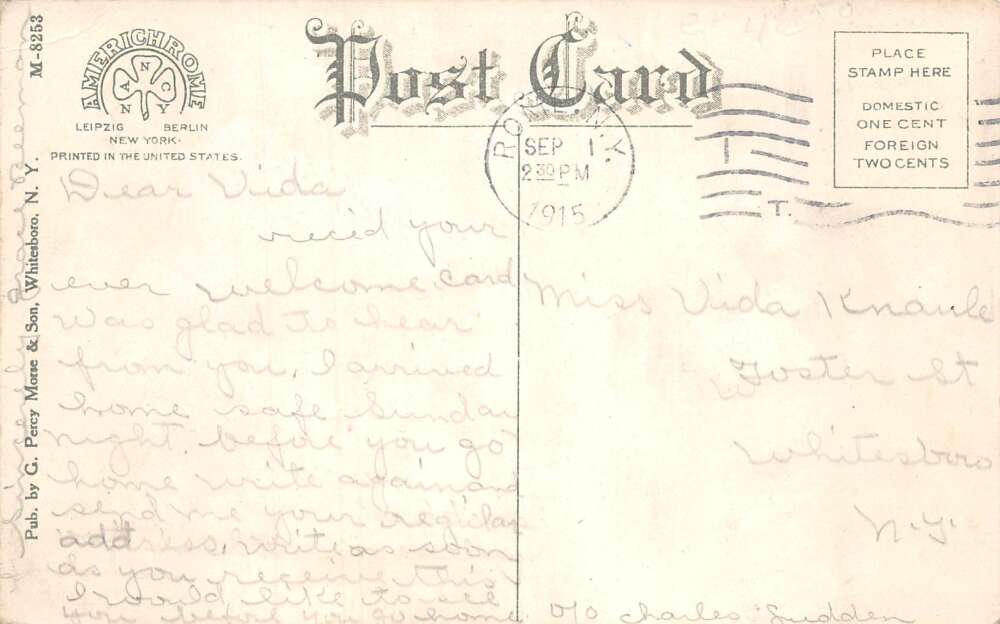 M-8253
Pub. by G. Percy Morse & Son, Whitesboro, N. Y.
AMERICHROME
ANNCY
LEIPZIG BERLIN
NEW YORK
PRINTED IN THE UNITED STATES.
Post Card
ROME, N.Y.
SEP 1
2 30 PM
1915
T.
PLACE
STAMP HERE
DOMESTIC
ONE CENT
FOREIGN
TWO CENTS
Dear Vida
rec'd your
ever welcome card
was glad to hear
from you, I arrived
home safe Sunday
night before you go
home write again and
send me your regular
address, write as soon
as you receive this
I would like to see
you before you go home
Miss Vida Knaule
W Foster St
Whitesboro
N.Y.
c/o Charles Sudden